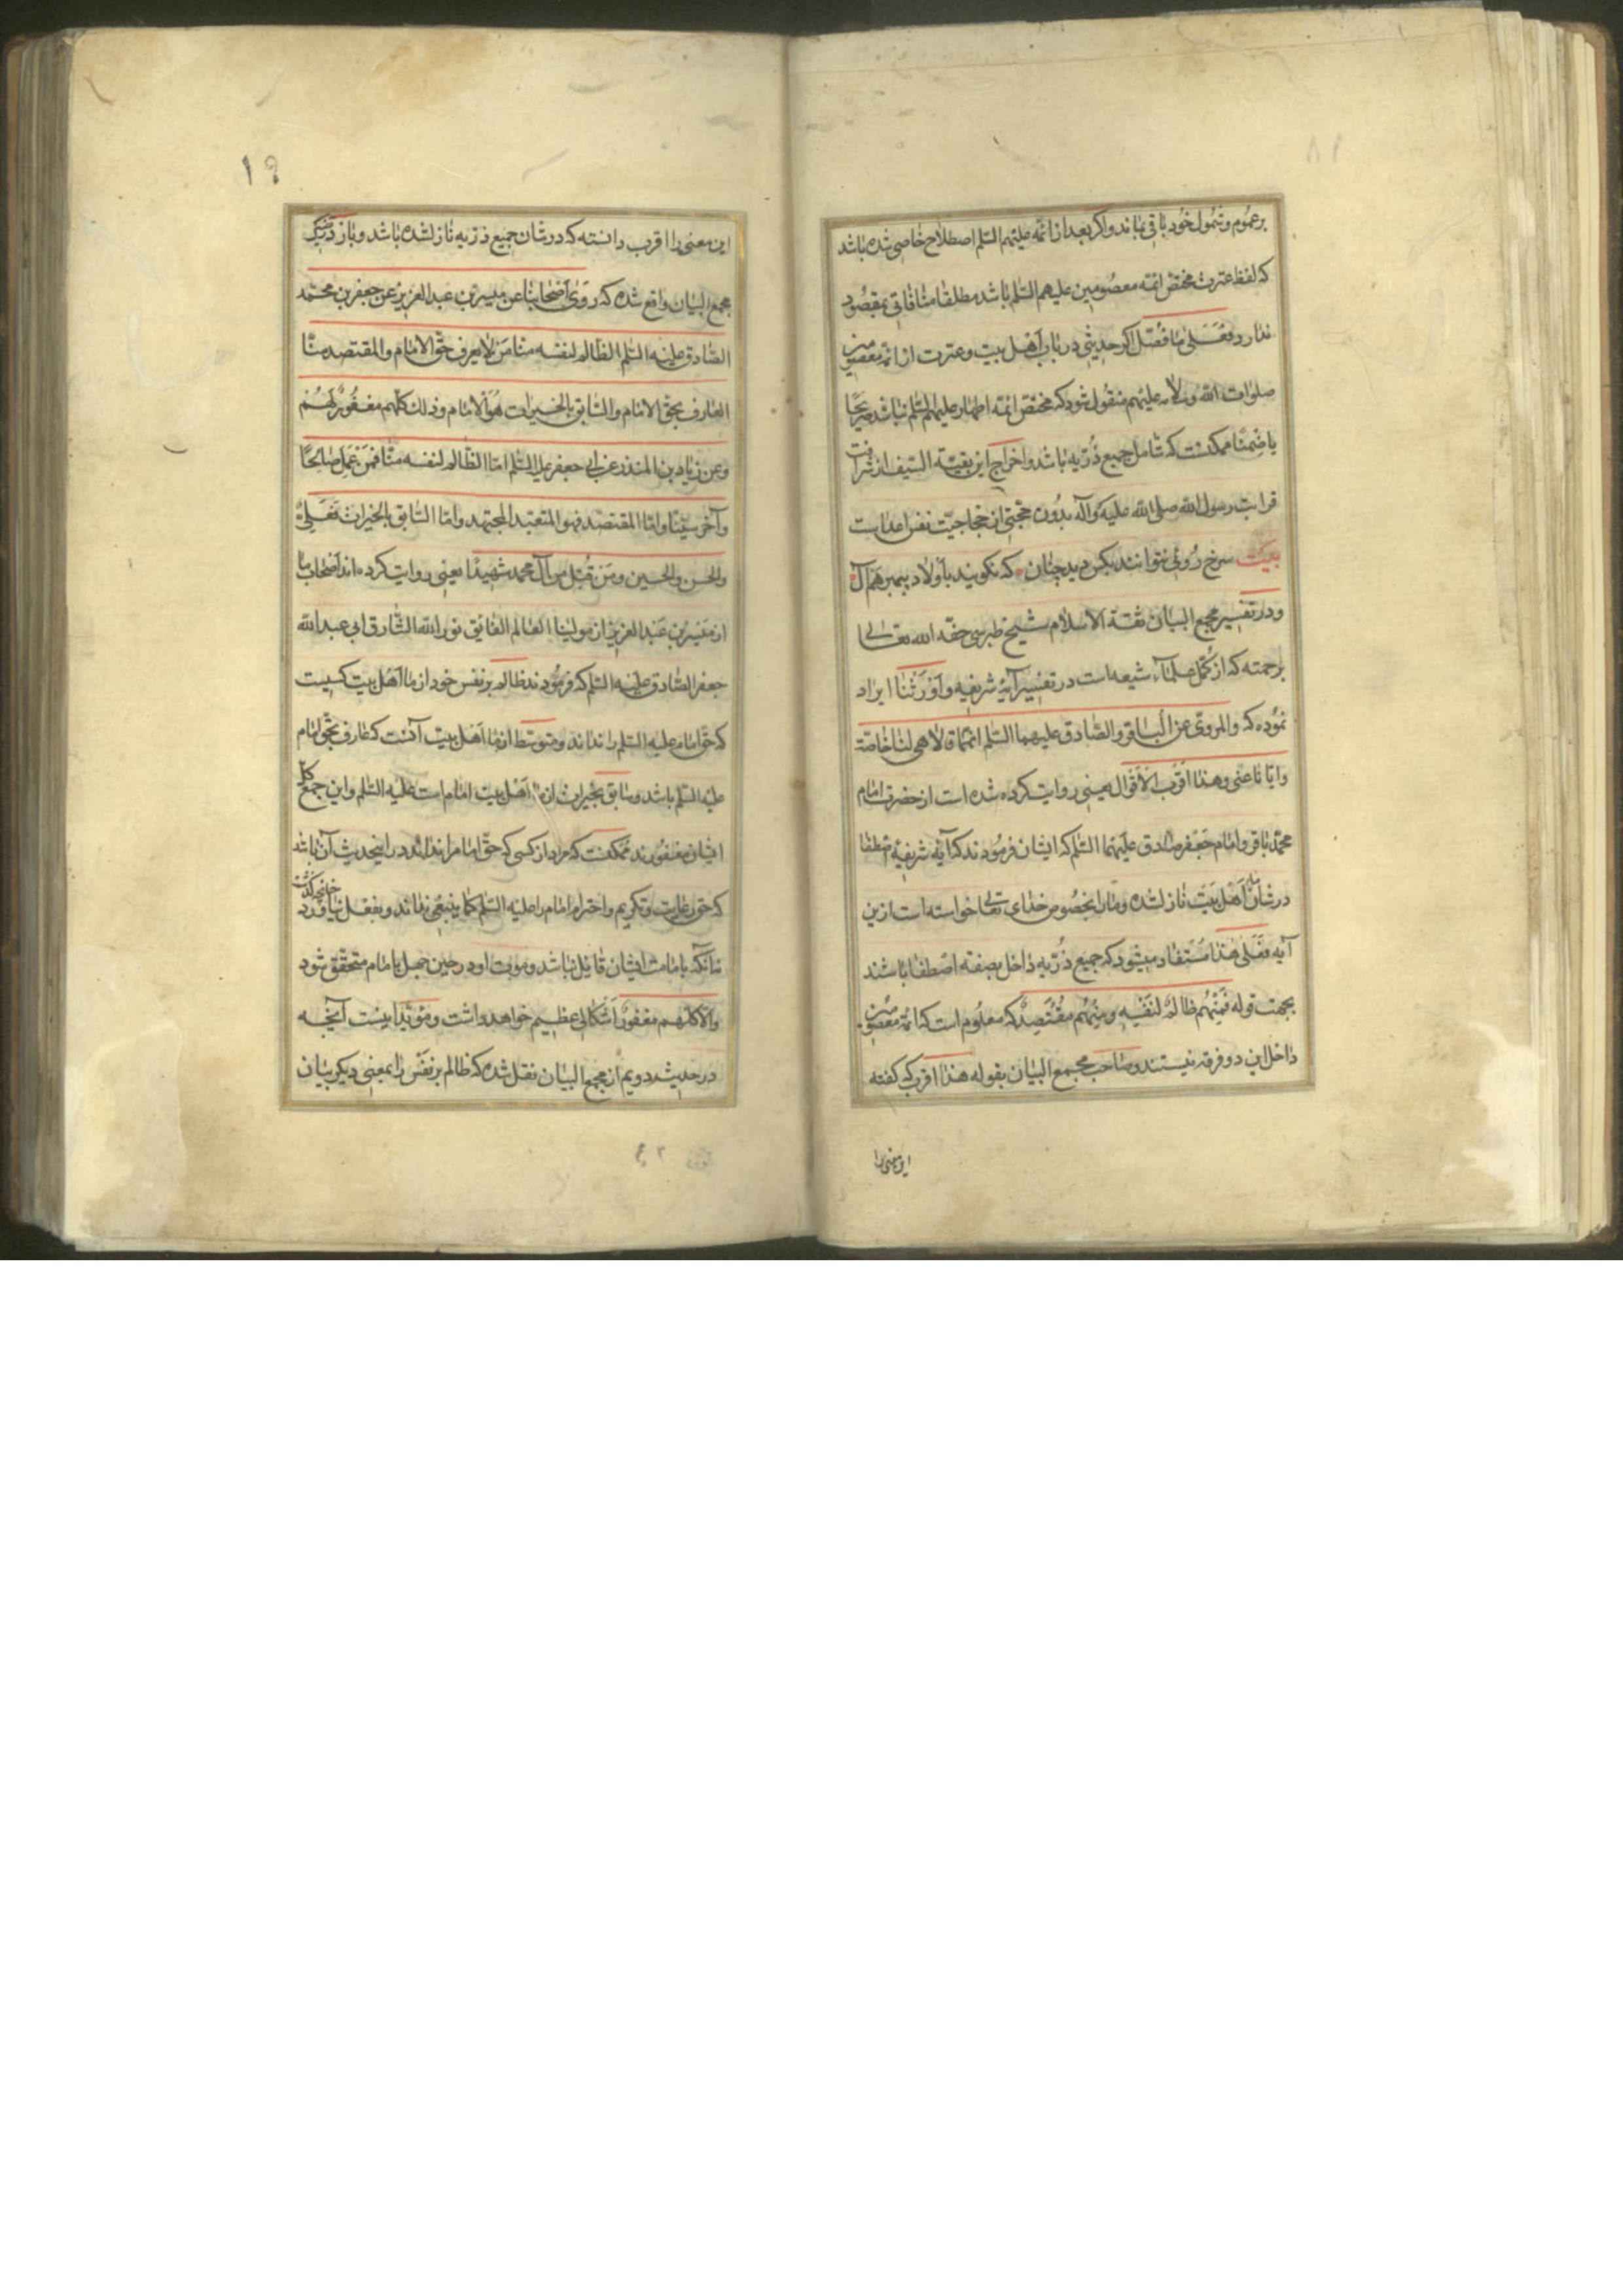 ۸۱
بر عموم و شمول خود باقی بماند و اگر بعد از ائمه علیهم السلم اصطلاح خاصی شده باشد
که لفظ عترت مختص ائمه معصومین علیهم السلم باشد مطلقا منافاتی بمقصود
ندارد فعلی ما فصّل اگر حدیثی در باب اهل بیت و عترت از ائمه معصومین
صلوات الله وسلامه علیهم منقول شود که مختص ائمه اطهار علیهم السلم نباشد صریحا
یا ضمنا ممکنست که شامل جمیع ذریه باشد و اخراج این بقیّة السیف از شرافت
قرابت رسول الله صلی الله علیه وآله بدون حجتی از حجاجیّت نفس اعداست
بیت سرخ رویی نتوانند بکس دید چنان که نکویند باولاد پیمبر هم آل
و در تفسیر مجمع البیان ثقة الاسلام شیخ طبرسی حفّه الله تعالی
برحمته که از کمّل علماء شیعه است در تفسیر آیهٔ شریفه و اورثنا ایراد
نموده که والمروی عن الباقر والصّادق علیهما السّلم انّهما قالا هی لنا خاصّة
وایّانا عنی وهذا اقرب الاقوال یعنی روایت کرده شده است از حضرت امام
محمّد باقر و امام جعفر صادق علیهما السّلم که ایشان فرمودند که آیهٔ شریفهٔ اصطفا
در شان ما اهل بیت نازل شده و ما را بخصوص خدای تعالی خواسته است ازین
آیه فعلی هذا مستفاد میشود که جمیع ذرّیه داخل بصفة اصطفا باشند
بجهت قوله فَمِنْهُم ظالمٌ لنفسِه ومِنْهُم مُقْتَصِدٌ که معلوم است که ائمه معصومین
داخل این دو فرقه نیستند و صاحب مجمع البیان بقوله هذا اقرب که گفته
این معنی را
۱۹
این معنی را اقرب دانسته که در شان جمیع ذرّیه نازل شده باشد و باز در تفسیر
مجمع البیان واقع شده که روی اصحابنا عن میسر بن عبد العزیز عن جعفر بن محمّد
الصّادق علیه السّلم الظّالم لنفسه منّا من لا یعرف حقّ الامام والمقتصد منّا
العارف بحقّ الامام والسّابق بالخیرات هو الامام وذلک کلّهم مغفورٌ لهم
وعن زیاد بن المنذر عن ابی جعفر علیه السّلم امّا الظّالم لنفسه منّا فمن عمل صالحًا
وآخر سیّئًا وامّا المقتصد فهو المتعبّد المجتهد وامّا السّابق بالخیرات فعلیٌّ
والحسن والحسین ومن قُتل من آل محمد شهیدًا یعنی روایت کرده‌اند اصحاب ما
از میسر بن عبد العزیز از مولینا العالم الفایق نور الله الشّارق ابی عبد الله
جعفر الصّادق علیه السّلم که فرمودند ظالم بر نفس خود از ما اهل بیت کسیست
که حقّ امام علیه السّلم را نداند و متوسّط از ما اهل بیت آنست که عارف بحقّ امام
علیه السّلم باشد و سابق بخیرات از ما اهل بیت امام است علیه السّلم و این جمع کل
ایشان مغفورند ممکنست که مراد از کسی که حقّ امام را نداند در اینحدیث آن باشد
که حق رعایت و تکریم و احترام امام را علیه السّلم کما ینبغی نداند و بفعل نیاورد چنانچه گذشت
نه آنکه بامامت ایشان قایل نباشد و موت او در حین جهل بامام متحقّق شود
والّا کلّهم مغفورٌ اشکالی عظیم خواهد داشت و مؤیّد اینست آنچه
در حدیث دویم از مجمع البیان نقل شده که ظالم بر نفس را بمعنی دیگر بیان